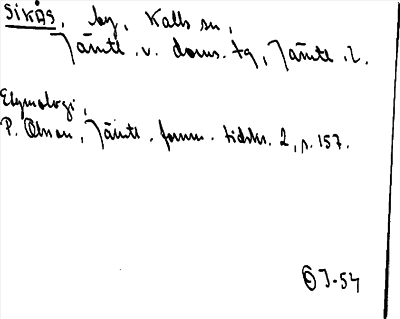 SIKÅS, by, Kalls sn,
Jämtl. v. doms. tg, Jämtl. l.
Etymologi,
P. Olsson, Jämtl. fornm. tidskr. 2, s. 157.
ÖJ-54